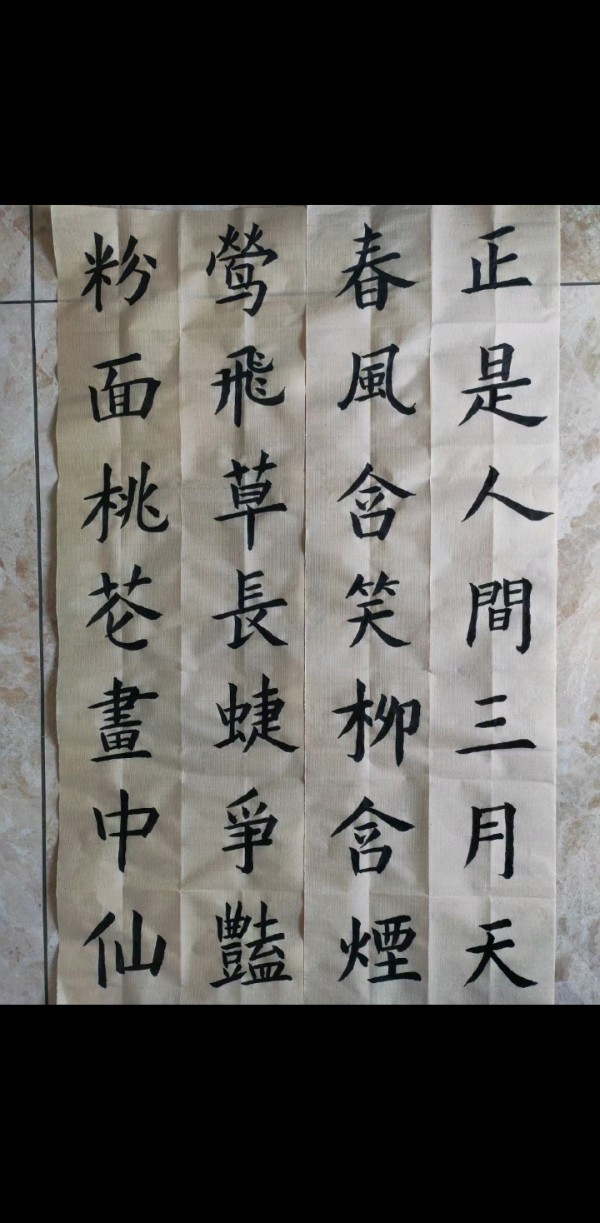 正是人間三月天
春風含笑柳含煙
鶯飛草長蜨爭豔
粉面桃芲畫中仙